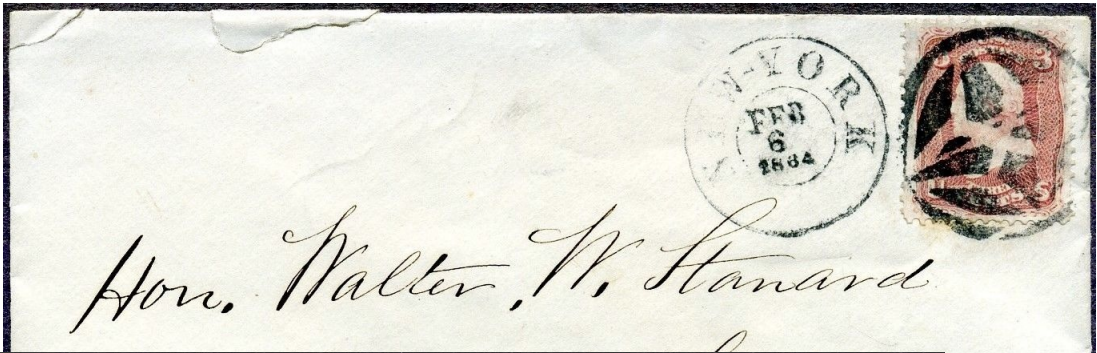 NEW-YORK
FEB
6
1864
3 3
U S
Hon. Walter. W. Stanard